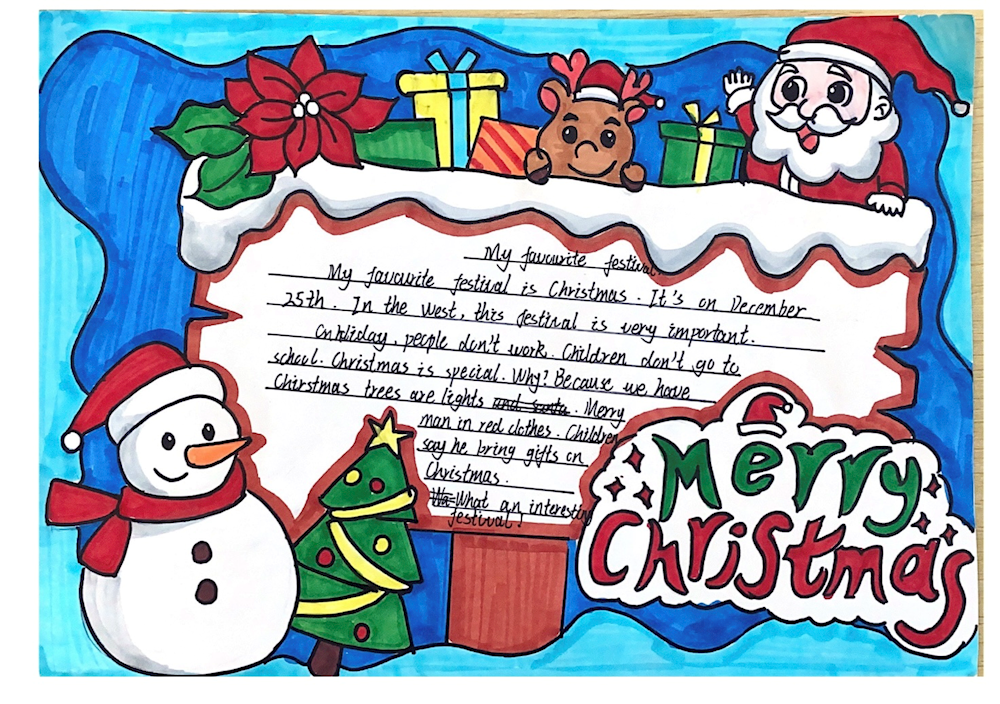 My favourite festival.
My favourite festival is Christmas. It's on December
25th. In the west, this festival is very important.
On holiday, people don't work. Children don't go to
school. Christmas is special. Why? Because we have
Chirstmas trees are lights and santa. Merry
man in red clothes. Children
say he bring gifts on
Christmas.
What an interesting
festival!
Merry
Christmas